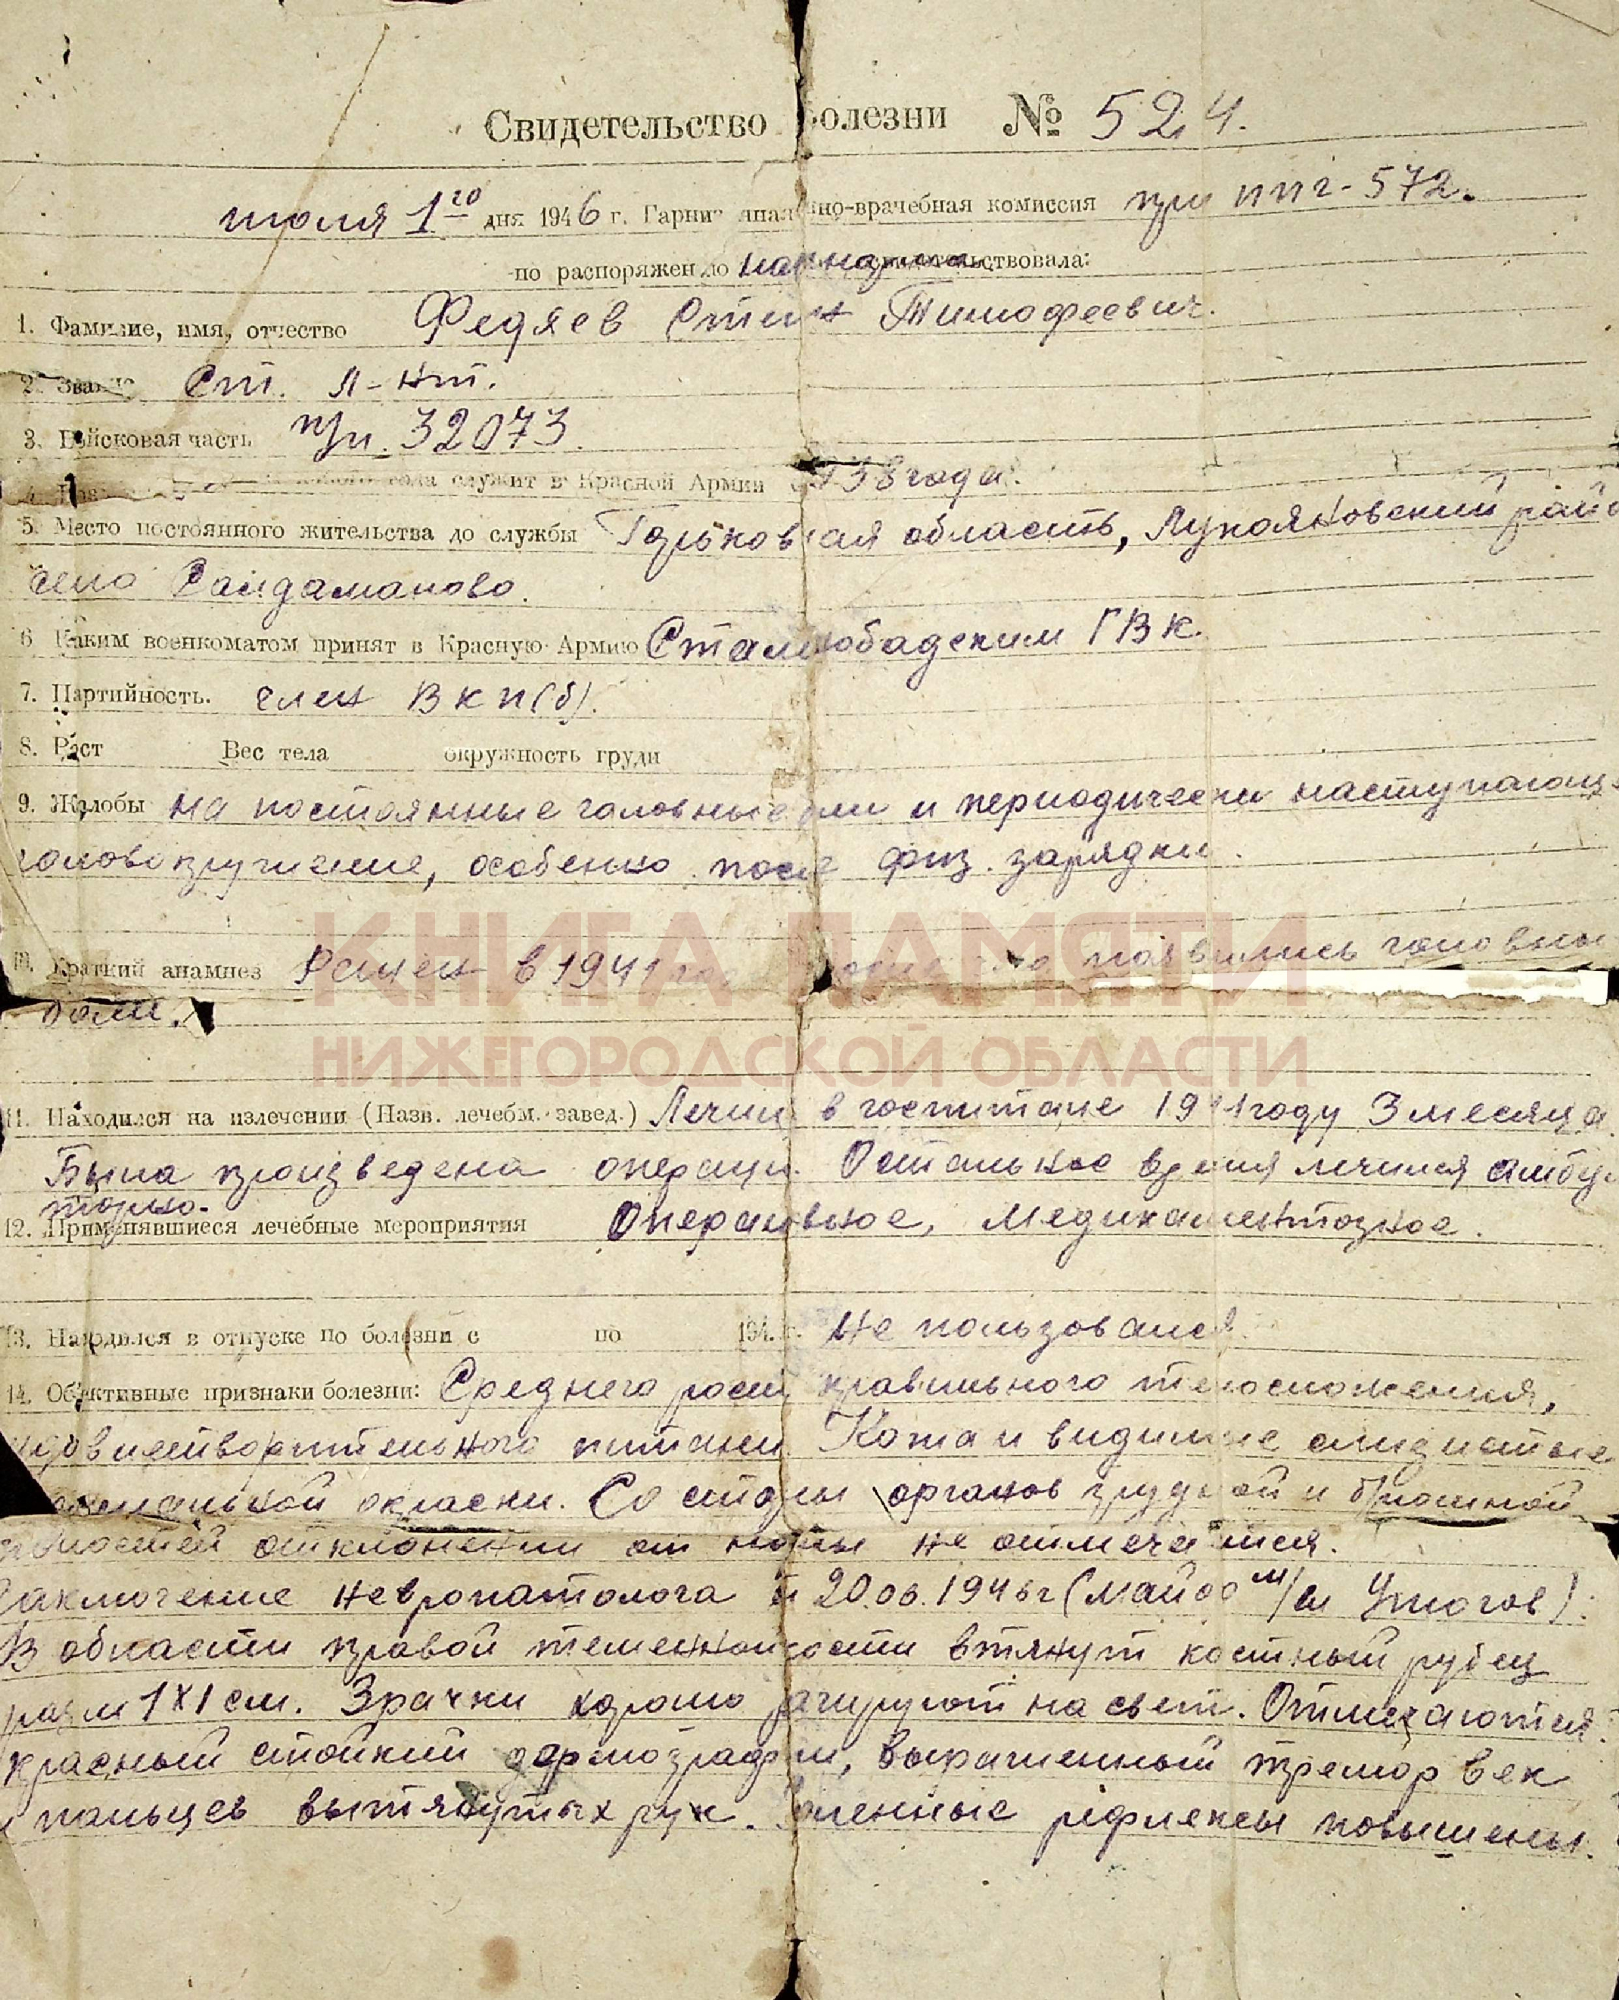 Свидетельство болезни № 524.
июля 1го дня 1946 г. Гарни но-врачебная комиссия при ппг-572.
по распоряжен свидетельствовала:
1. Фамилие, имя, отчество Федяев Степан Тимофеевич.
2. Звание Ст. л-нт.
3. Войсковая часть п/п. 32073.
года служит в Красной Армии 1938 года.
5. Место постоянного жительства до службы Горьковская область, Лукояновский райо
село Салдаманово.
6 Каким военкоматом принят в Красную Армию Сталинобадским ГВК.
7. Партийность. член ВКП(б).
8. Рост Вес тела окружность груди
9. Жалобы на постоянные головные боли и периодически наступающ
головокружение, особенно после физ. зарядки.
КНИГА ПАМЯТИ
10. Краткий анамнез Ранен в 1941 появились головны
боли.
НИЖЕГОРОДСКОЙ ОБЛАСТИ
11. Находился на излечении (Назв. лечебн. завед.) Лечил в госпитале 1941 году 3 месяца.
Была произведена операци. Остальное время лечился амбу
торно.
12. Применявшиеся лечебные мероприятия Оперативное, медикаментозное.
13. Находился в отпуске по болезни с по 194 г. не пользовался
14. Объективные признаки болезни: Среднего рост правильного телосложения,
удовлетворительного питани. Кожа и видимые слизистые
нормальной окраски. Со стороны органов грудной и брюшной
полостей отклонении от нормы не отмечается.
Заключение невропатолога от 20.06.1946г (майор м/сл Утогов):
В области правой теменной кости втянут костный рубец
разм 1х1 см. Зрачки хорошо реагируют на свет. Отмечаются
красный стойкий дермографизм, выраженный тремор век
и пальцев вытянутых рук. Коленные рефлексы повышены.